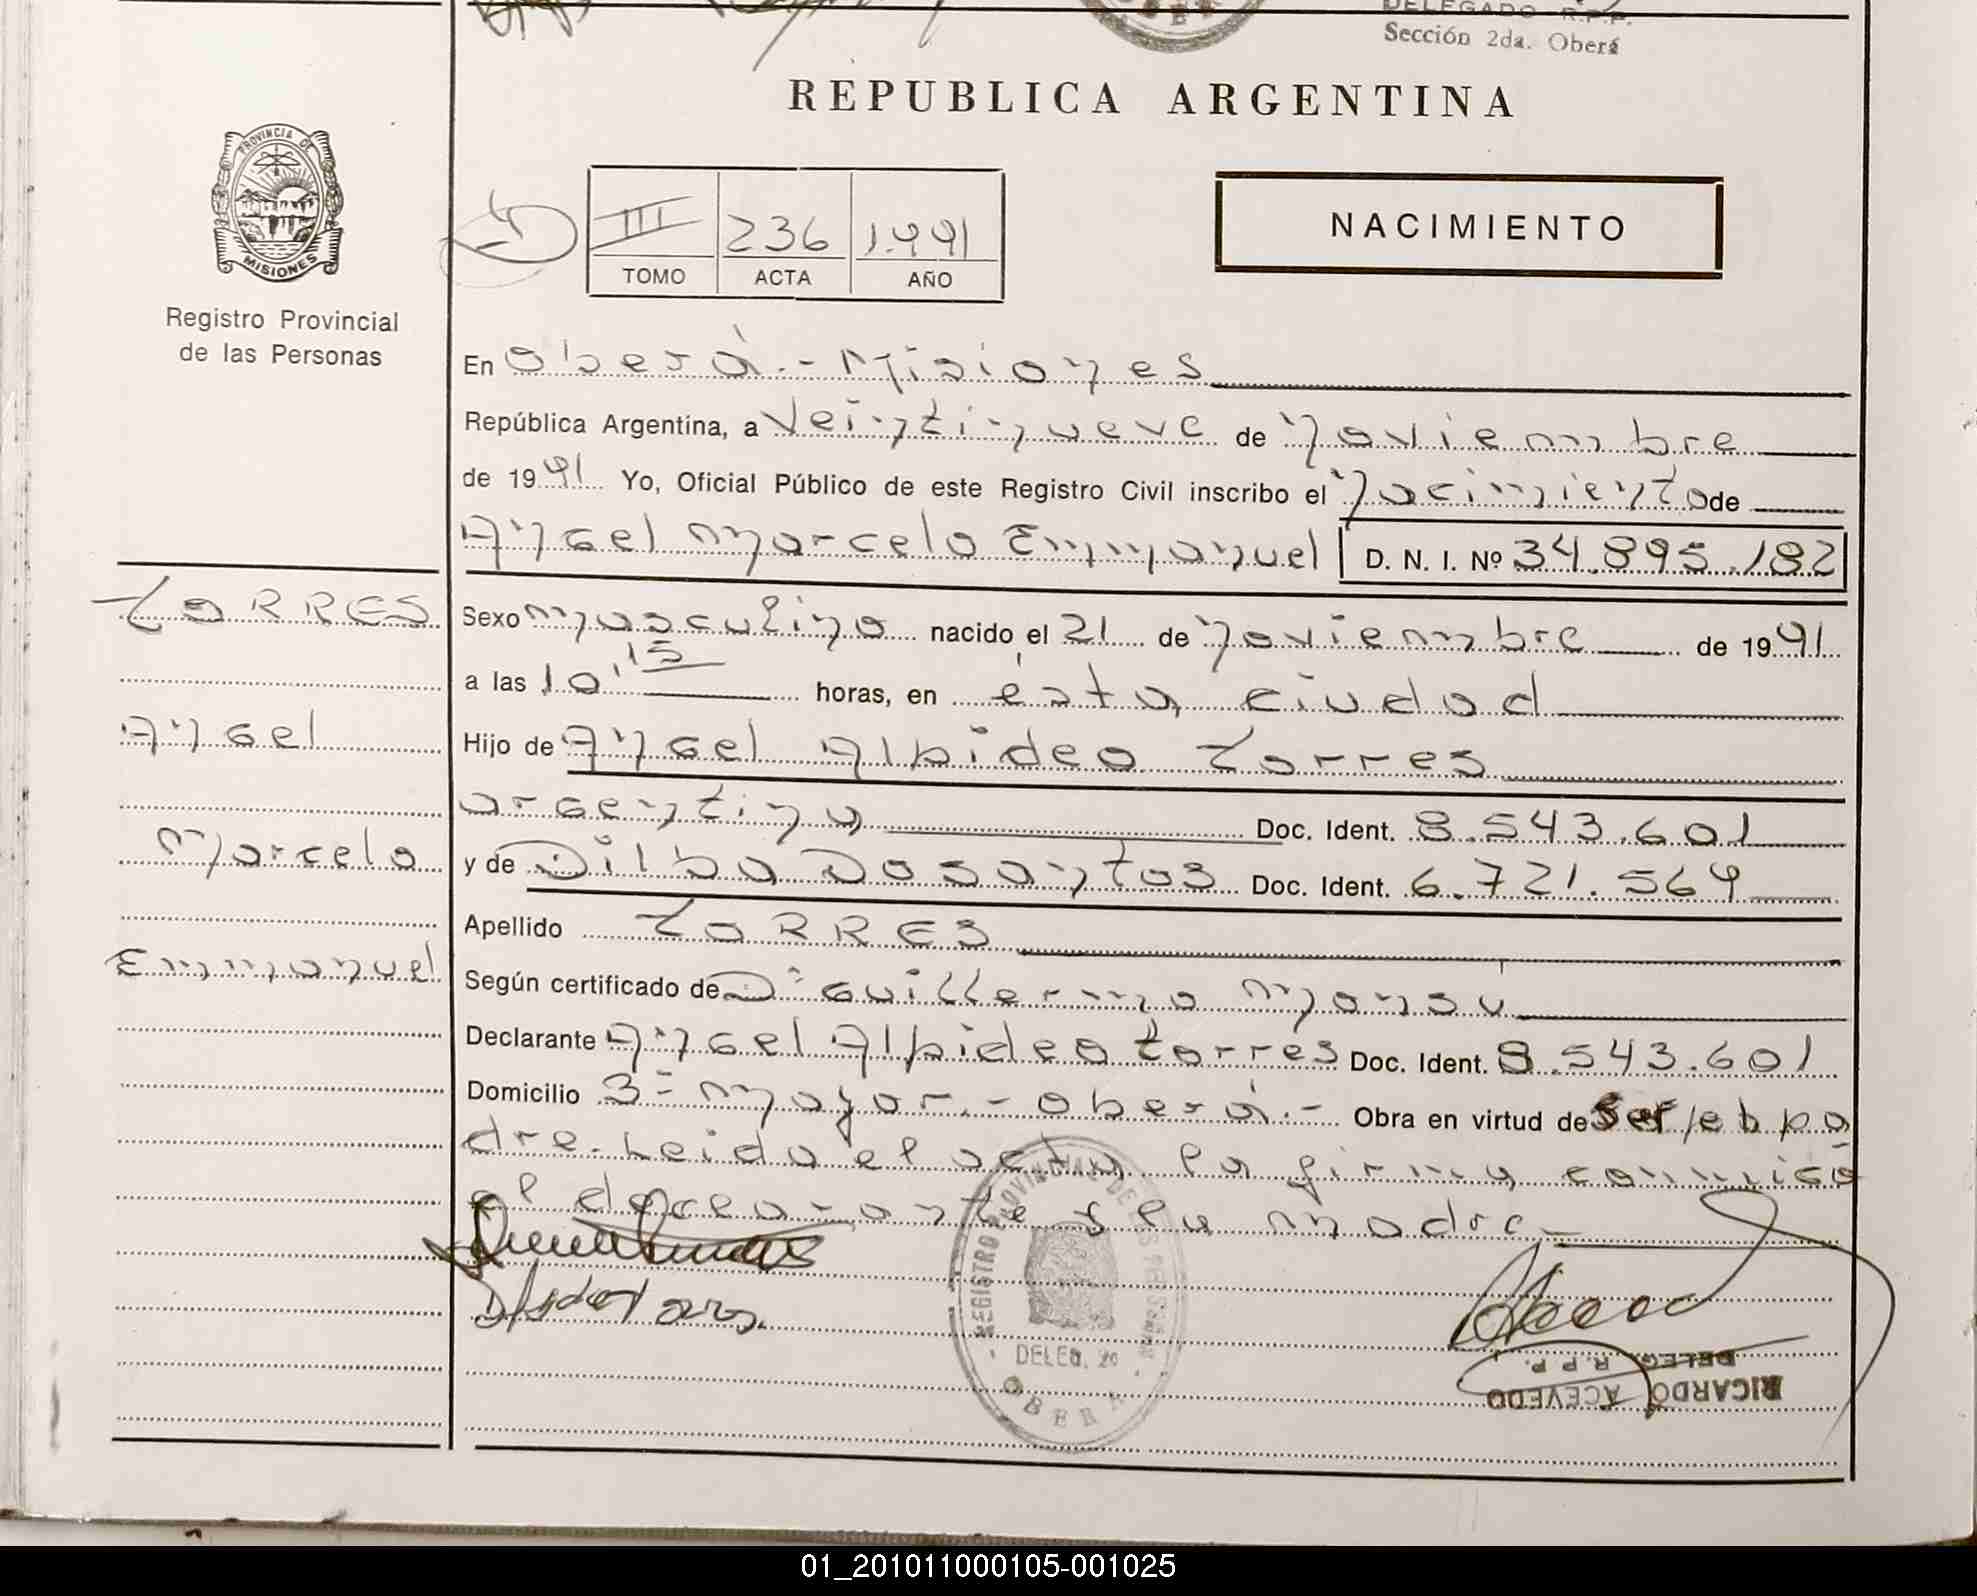 DELEGADO R.P.P.
Sección 2da. Oberá
REPUBLICA ARGENTINA
PROVINCIA DE
MISIONES
Registro Provincial
de las Personas
III 236 1.991
TOMO ACTA AÑO
NACIMIENTO
En Oberá.- Misiones
República Argentina, a Veintinueve de noviembre
de 1991 Yo, Oficial Público de este Registro Civil inscribo el nacimiento de
Angel Marcelo Emmanuel D. N. I. Nº 34.895.182
TORRES
Angel
Marcelo
Emmanuel
Sexo masculino nacido el 21 de noviembre de 1991
a las 10,15 horas, en ésta ciudad
Hijo de Angel Albideo Torres
argentino Doc. Ident. 8.543.601
y de Dilba Dosantos Doc. Ident. 6.721.564
Apellido TORRES
Según certificado de D: Guillermo
Declarante Angel Albideo Torres Doc. Ident. 8.543.601
Domicilio 3= mayor.- Oberá.- Obra en virtud de ser el pa
dre.- Leida el acta la firma conmigo
el declarante y la madre
REGISTRO PROVINCIAL DE LAS PERSONAS
DELEG. 2a
OBERA
RICARDO ACEVEDO
DELEG. R. P. P.
01_201011000105-001025